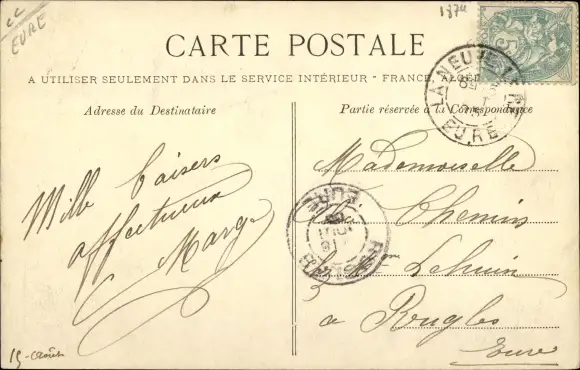 EURE
CARTE POSTALE
A UTILISER SEULEMENT DANS LE SERVICE INTÉRIEUR - FRANCE,
Adresse du Destinataire
Partie réservée à la Correspondance
LA NEUVE
EURE
Mille baisers
affectueux
Marge
Mademoiselle
Chemins
Lehuin
à Rugles
Eure
EURE